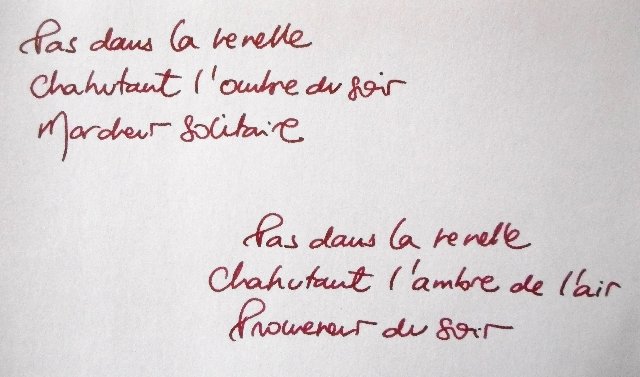 Pas dans la venelle
Chahutant l'ombre du soir
Marcheur solitaire
Pas dans la venelle
Chahutant l'ambre de l'air
Promeneur du soir